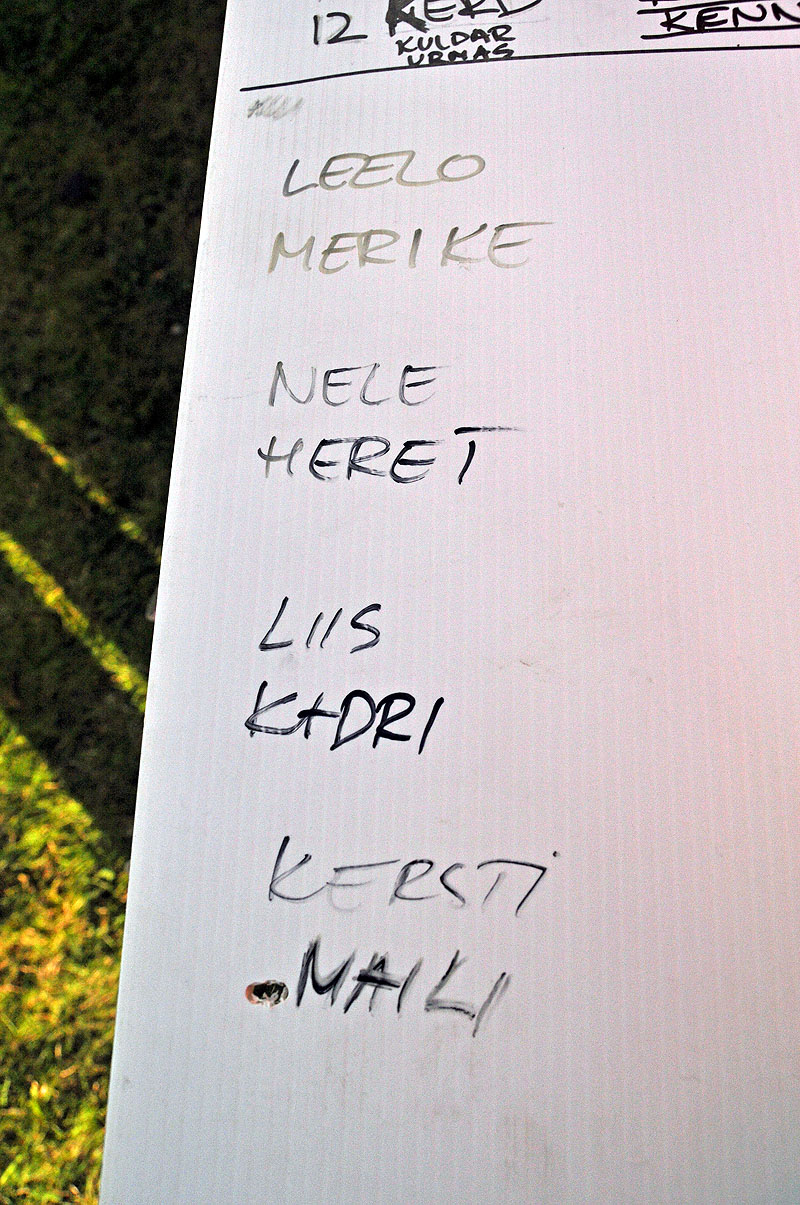 12 KERD KENN
KULDAR
URMAS
LEELO
MERIKE
NELE
HERET
LIIS
KADRI
KERSTI
MAILI